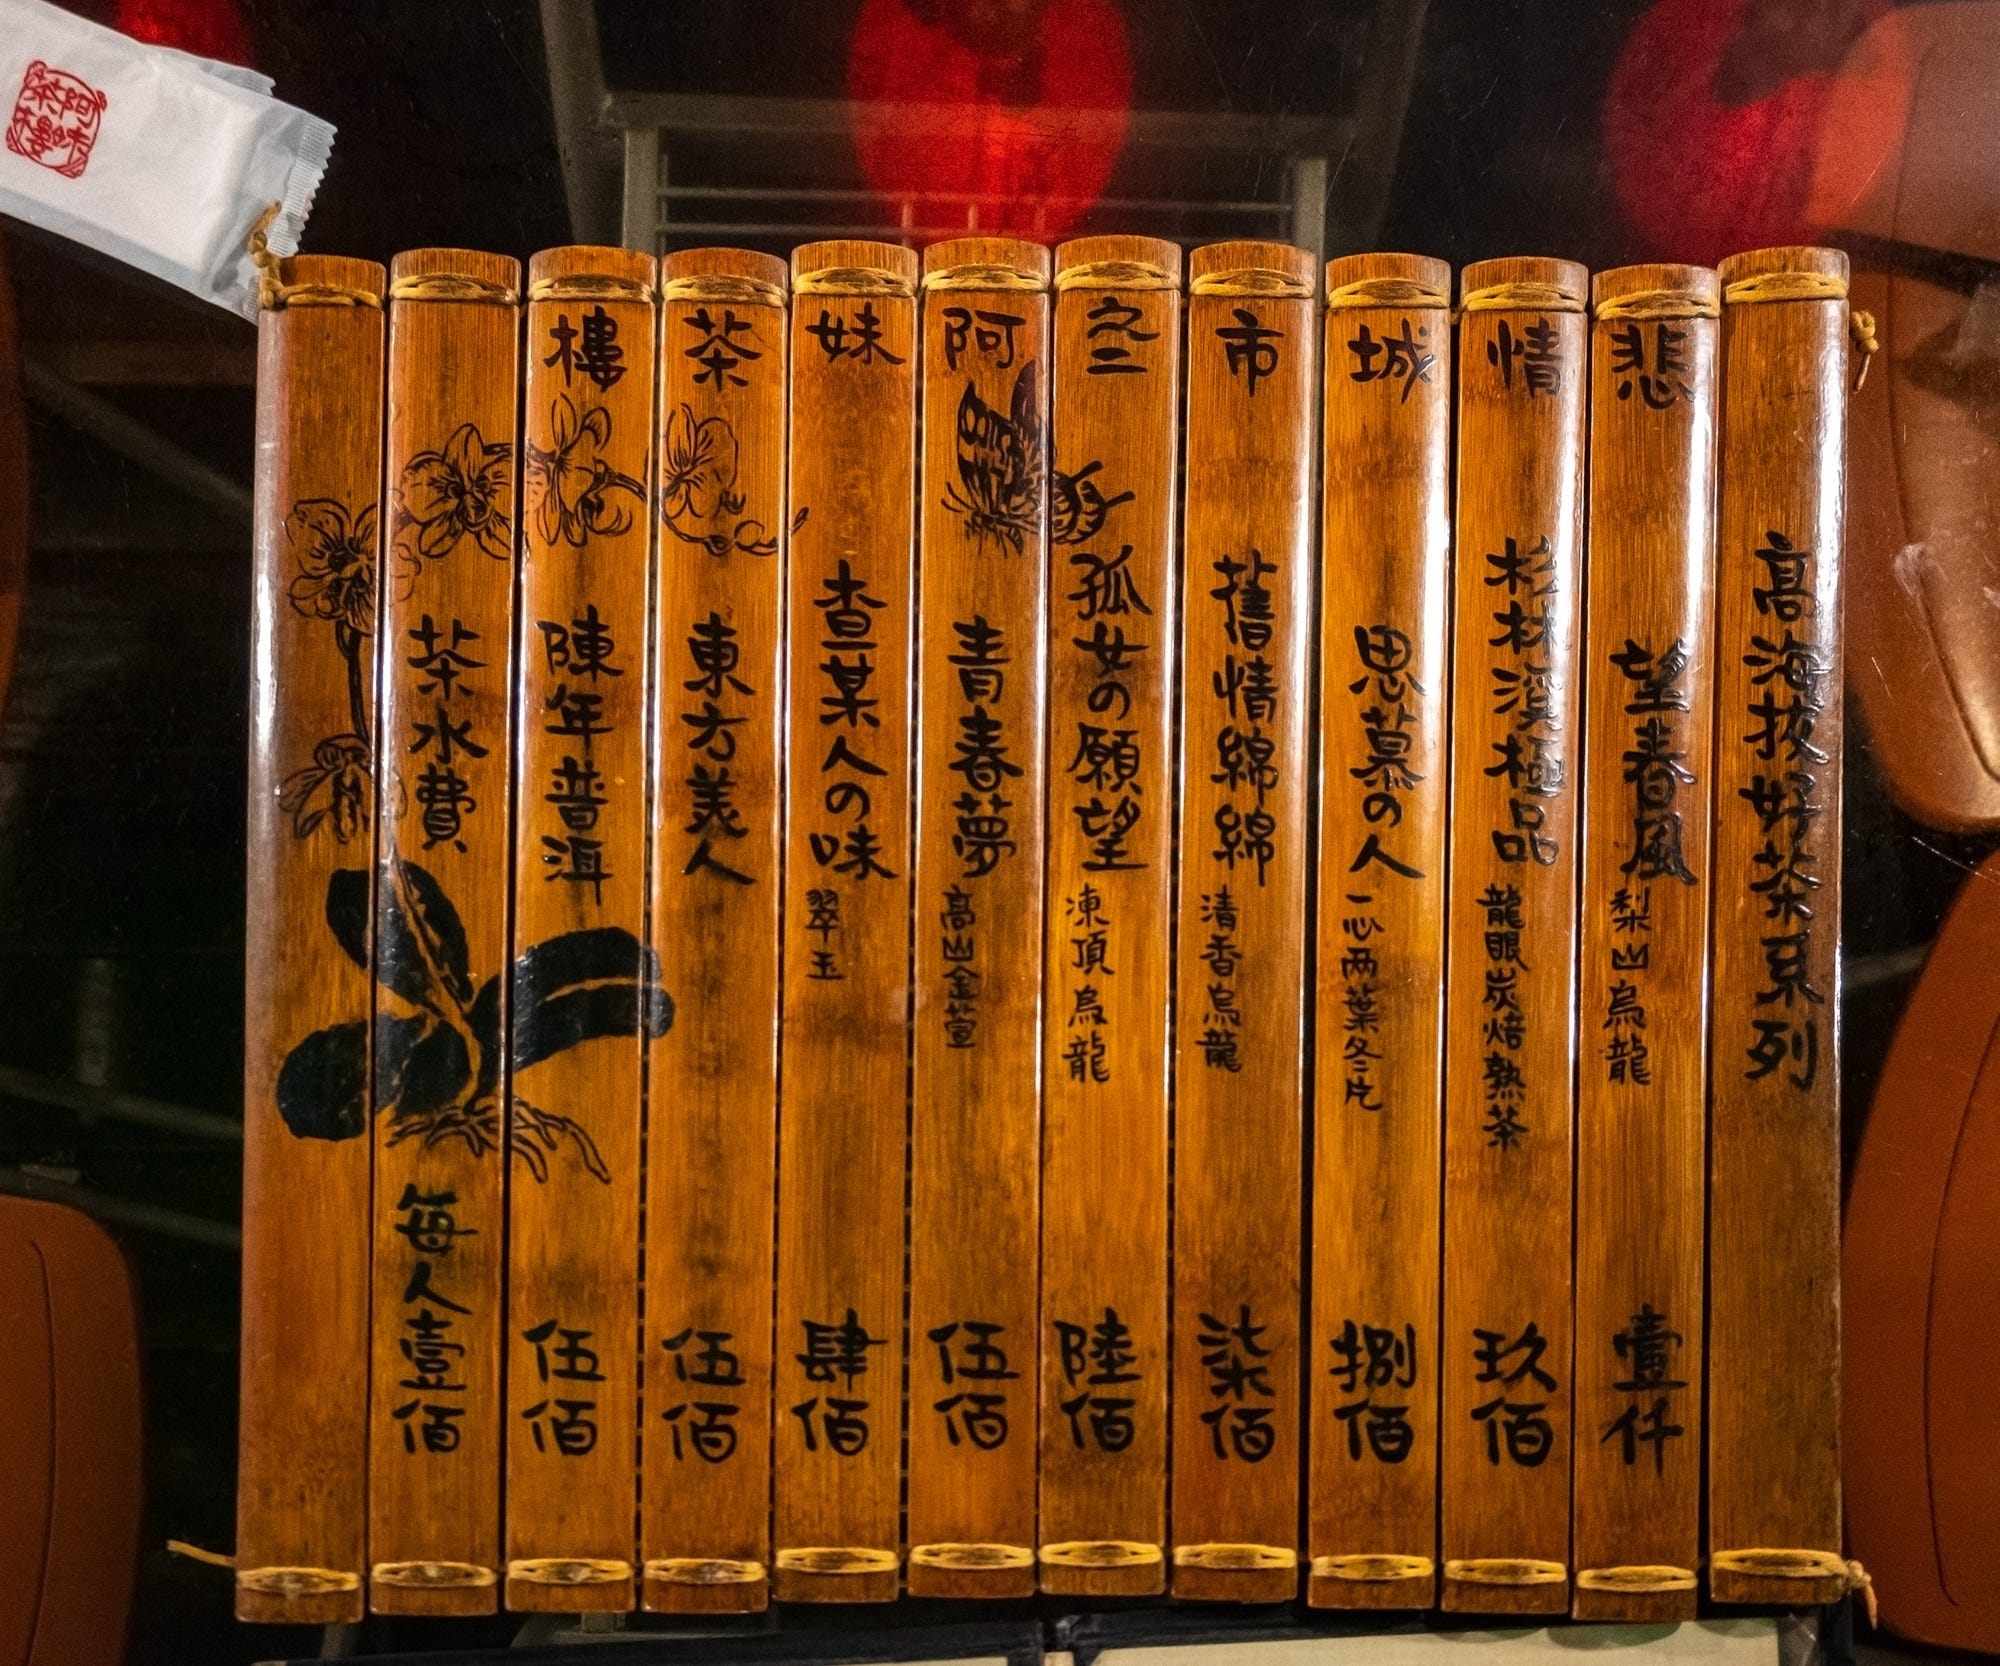 悲情城市之二阿妹茶樓
高海拔好茶系列
望春風 梨山烏龍 壹仟
杉林溪極品 龍眼炭焙熟茶 玖佰
思慕の人 一心兩葉冬片 捌佰
舊情綿綿 清香烏龍 柒佰
孤女の願望 凍頂烏龍 陸佰
青春夢 高山金萱 伍佰
查某人の味 翠玉 肆佰
東方美人 伍佰
陳年普洱 伍佰
茶水費 每人壹佰
阿妹茶樓